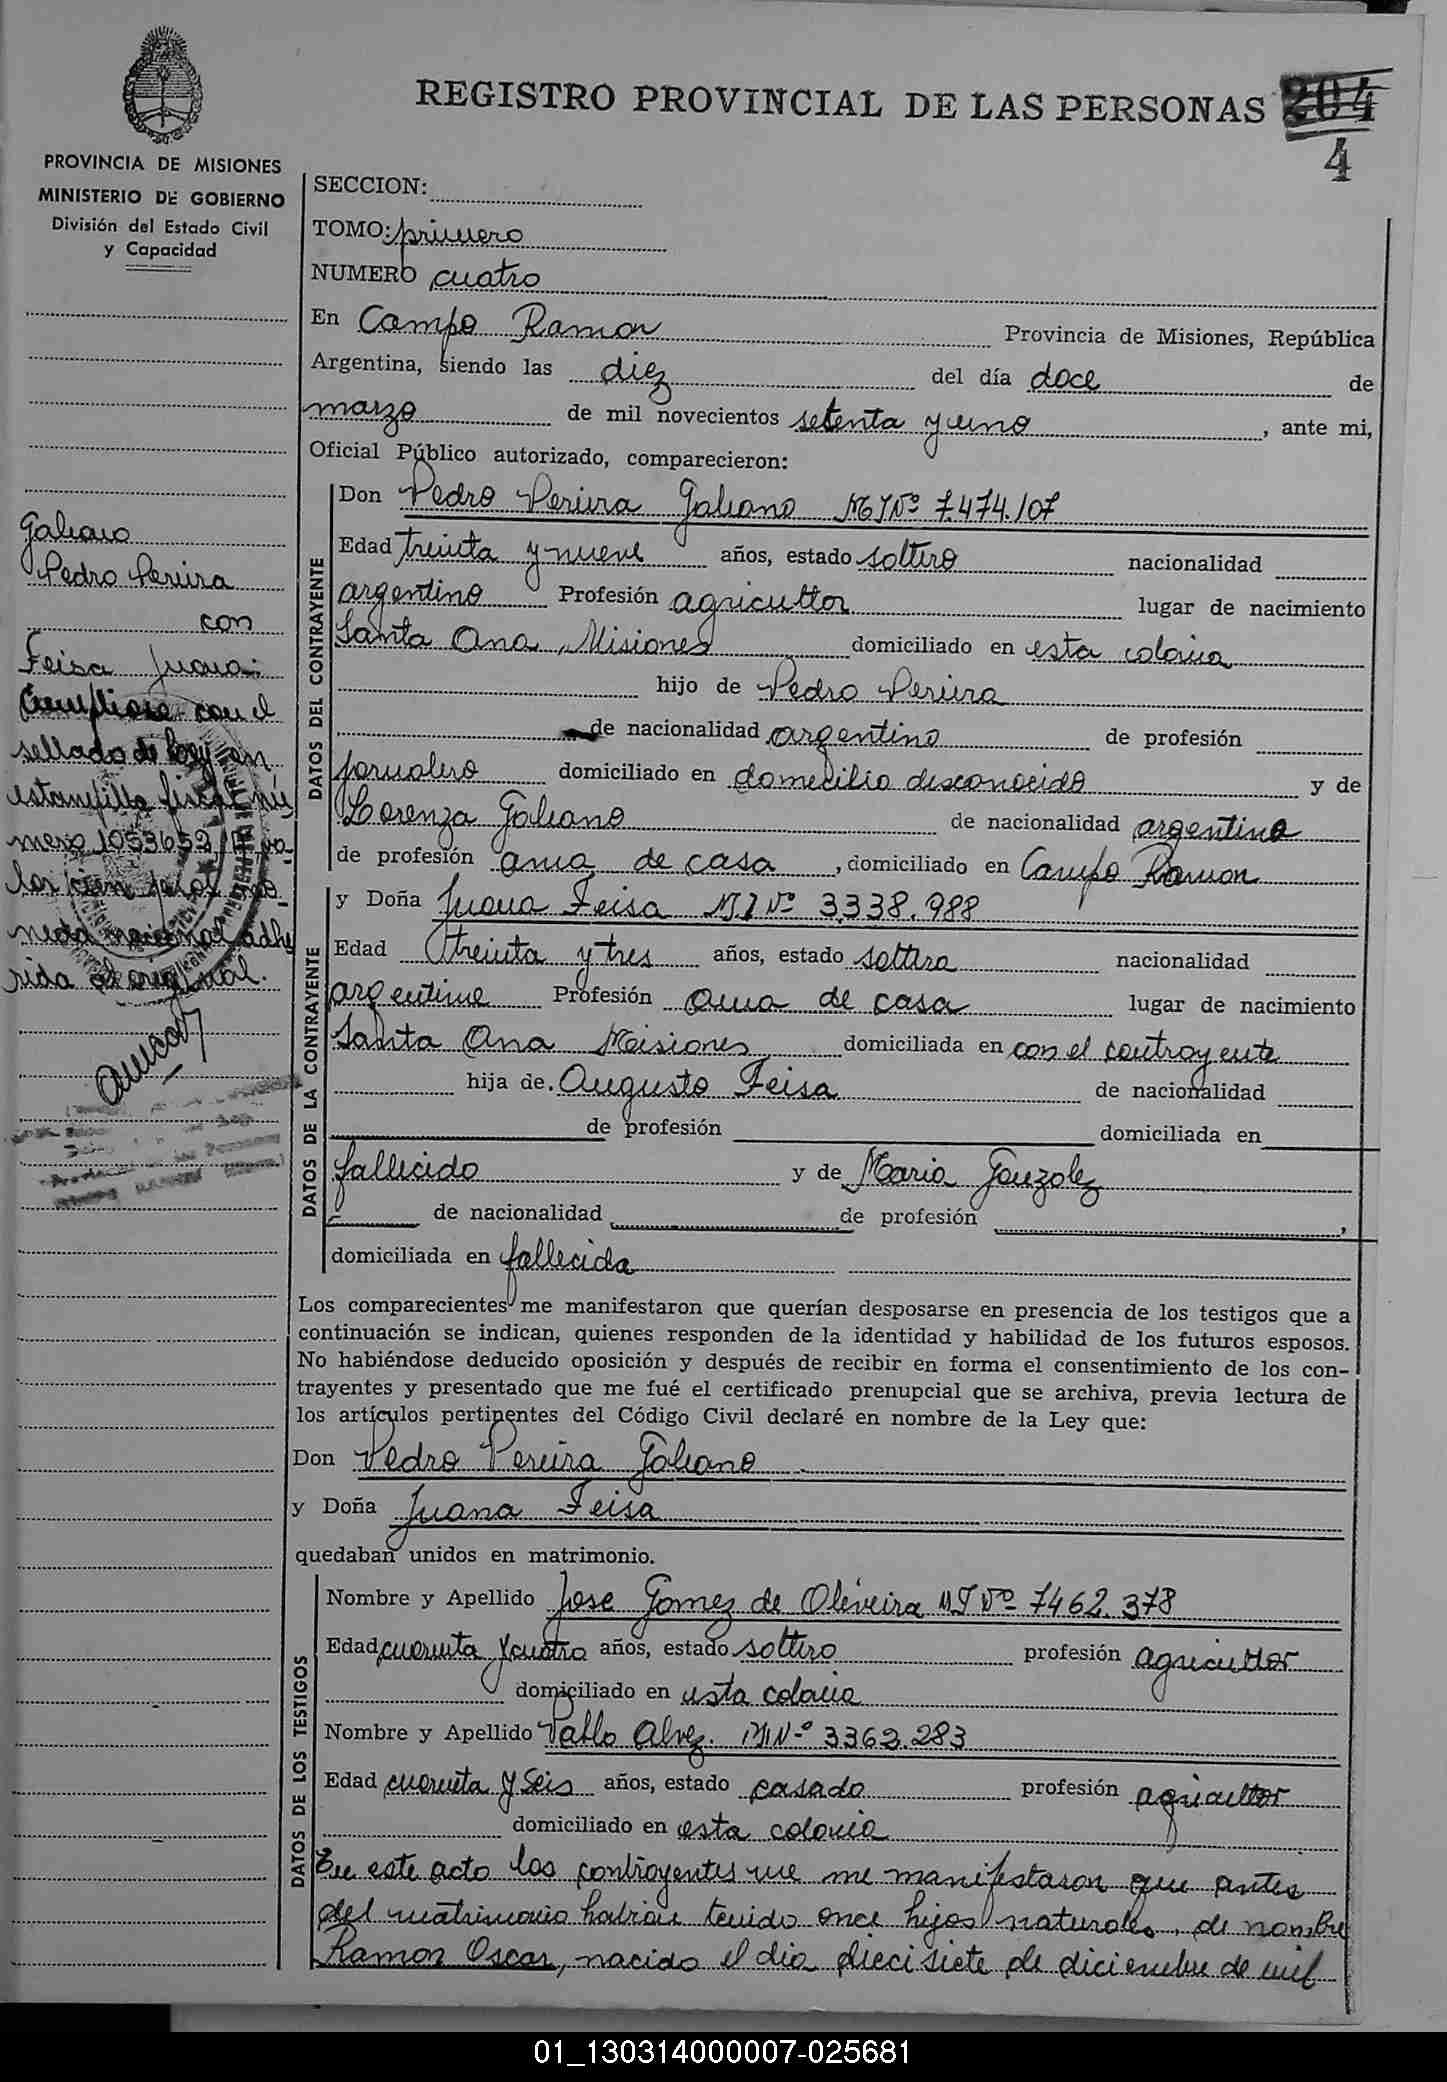 REGISTRO PROVINCIAL DE LAS PERSONAS 204
4
PROVINCIA DE MISIONES
MINISTERIO DE GOBIERNO
División del Estado Civil
y Capacidad
SECCION:
TOMO: primero
NUMERO cuatro
En Campo Ramon Provincia de Misiones, República
Argentina, siendo las diez del día doce de
marzo de mil novecientos setenta y uno, ante mi,
Oficial Público autorizado, comparecieron:
Galeano
Pedro Pereira
con
Feisa Juana:
Cumpliose con el
sellado de ley en
estampilla fiscal nú
mero 1053652
lor cien pesos mo-
neda nacional adhe
rida al original.
DATOS DEL CONTRAYENTE
Don Pedro Pereira Galeano MI Nº 7.474.107
Edad treinta y nueve años, estado soltero nacionalidad
argentino Profesión agricultor lugar de nacimiento
Santa Ana, Misiones domiciliado en esta colonia
hijo de Pedro Pereira
de nacionalidad argentino de profesión
jornalero domiciliado en domicilio desconocido y de
Lorenza Galeano de nacionalidad argentina
de profesión ama de casa, domiciliado en Campo Ramon
DATOS DE LA CONTRAYENTE
y Doña Juana Feisa MI Nº 3.338.988
Edad treinta y tres años, estado soltera nacionalidad
argentina Profesión ama de casa lugar de nacimiento
Santa Ana Misiones domiciliada en con el contrayente
hija de Augusto Feisa de nacionalidad
de profesión domiciliada en
fallecido y de Maria Gonzalez
de nacionalidad de profesión ,
domiciliada en fallecida
Los comparecientes me manifestaron que querían desposarse en presencia de los testigos que a
continuación se indican, quienes responden de la identidad y habilidad de los futuros esposos.
No habiéndose deducido oposición y después de recibir en forma el consentimiento de los con-
trayentes y presentado que me fué el certificado prenupcial que se archiva, previa lectura de
los artículos pertinentes del Código Civil declaré en nombre de la Ley que:
Don Pedro Pereira Galeano
y Doña Juana Feisa
quedaban unidos en matrimonio.
DATOS DE LOS TESTIGOS
Nombre y Apellido Jose Gomez de Oliveira MI Nº 7462.378
Edad cuarenta y cuatro años, estado soltero profesión agricultor
domiciliado en esta colonia
Nombre y Apellido Pablo Alvez. MI Nº 3362.283
Edad cuarenta y seis años, estado casado profesión agricultor
domiciliado en esta colonia
En este acto los contrayentes me manifestaron que antes
del matrimonio habian tenido once hijos naturales, de nombre
Ramon Oscar, nacido el dia diecisiete de diciembre de mil
01_130314000007-025681